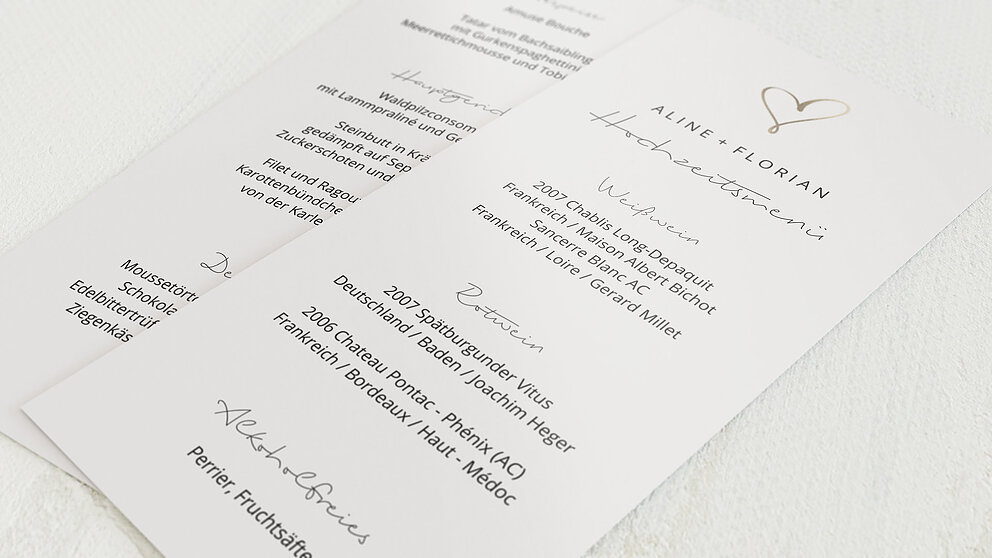 ALINE + FLORIAN
Hochzeitsmenü
Weißwein
2007 Chablis Long-Depaquit
Frankreich / Maison Albert Bichot
Sancerre Blanc AC
Frankreich / Loire / Gerard Millet
Rotwein
2007 Spätburgunder Vitus
Deutschland / Baden / Joachim Heger
2006 Chateau Pontac - Phénix (AC)
Frankreich / Bordeaux / Haut - Médoc
Alkoholfreies
Perrier, Fruchtsäfte
Amuse Bouche
Tatar vom Bachsaibling
mit Gurkenspaghettini
Meerrettichmousse und Tobi
Hauptgerich
Waldpilzconsom
mit Lammpraliné und Ge
Steinbutt in Krä
gedämpft auf Sep
Zuckerschoten und
Filet und Ragou
Karottenbündche
von der Karle
De
Moussetört
Schokola
Edelbittertrüf
Ziegenkäs